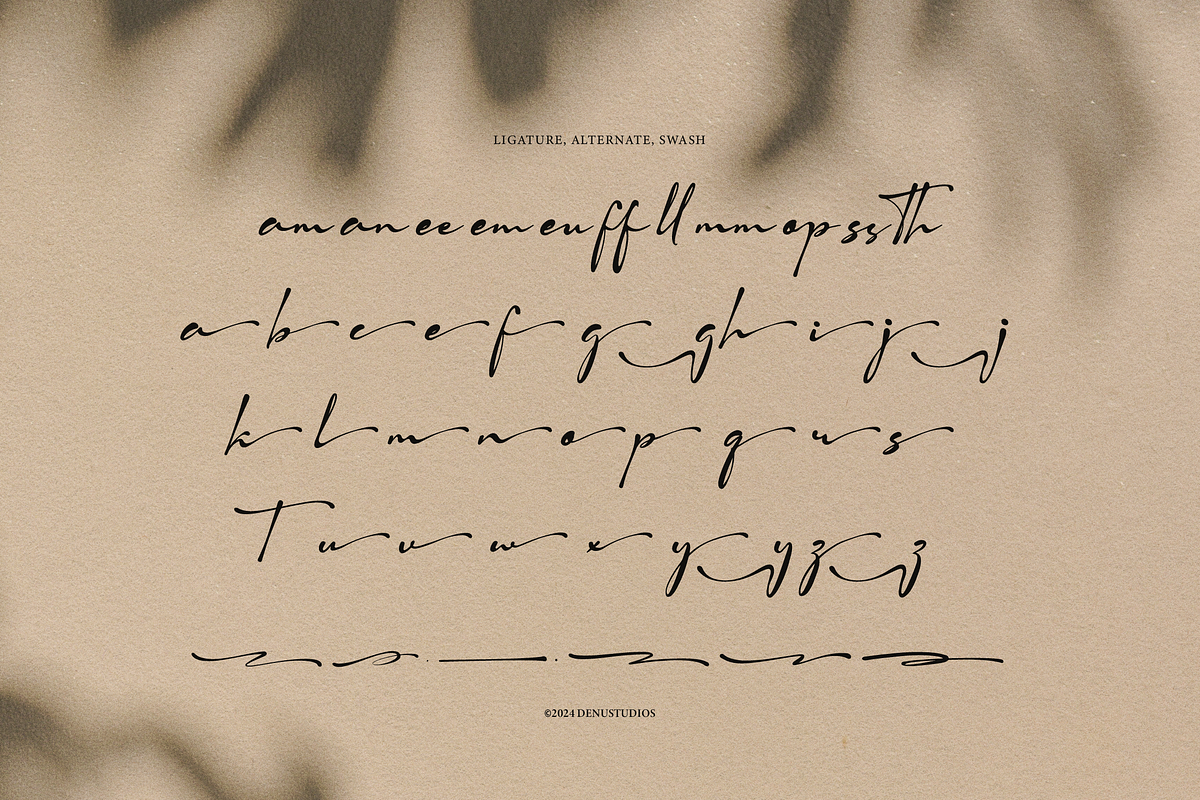 LIGATURE, ALTERNATE, SWASH
am an ee em eu ff ll mm op ss Th
a b c e f g g h i j j
k l m n o p q u s
T u v w x y y z z
©2024 DENUSTUDIOS